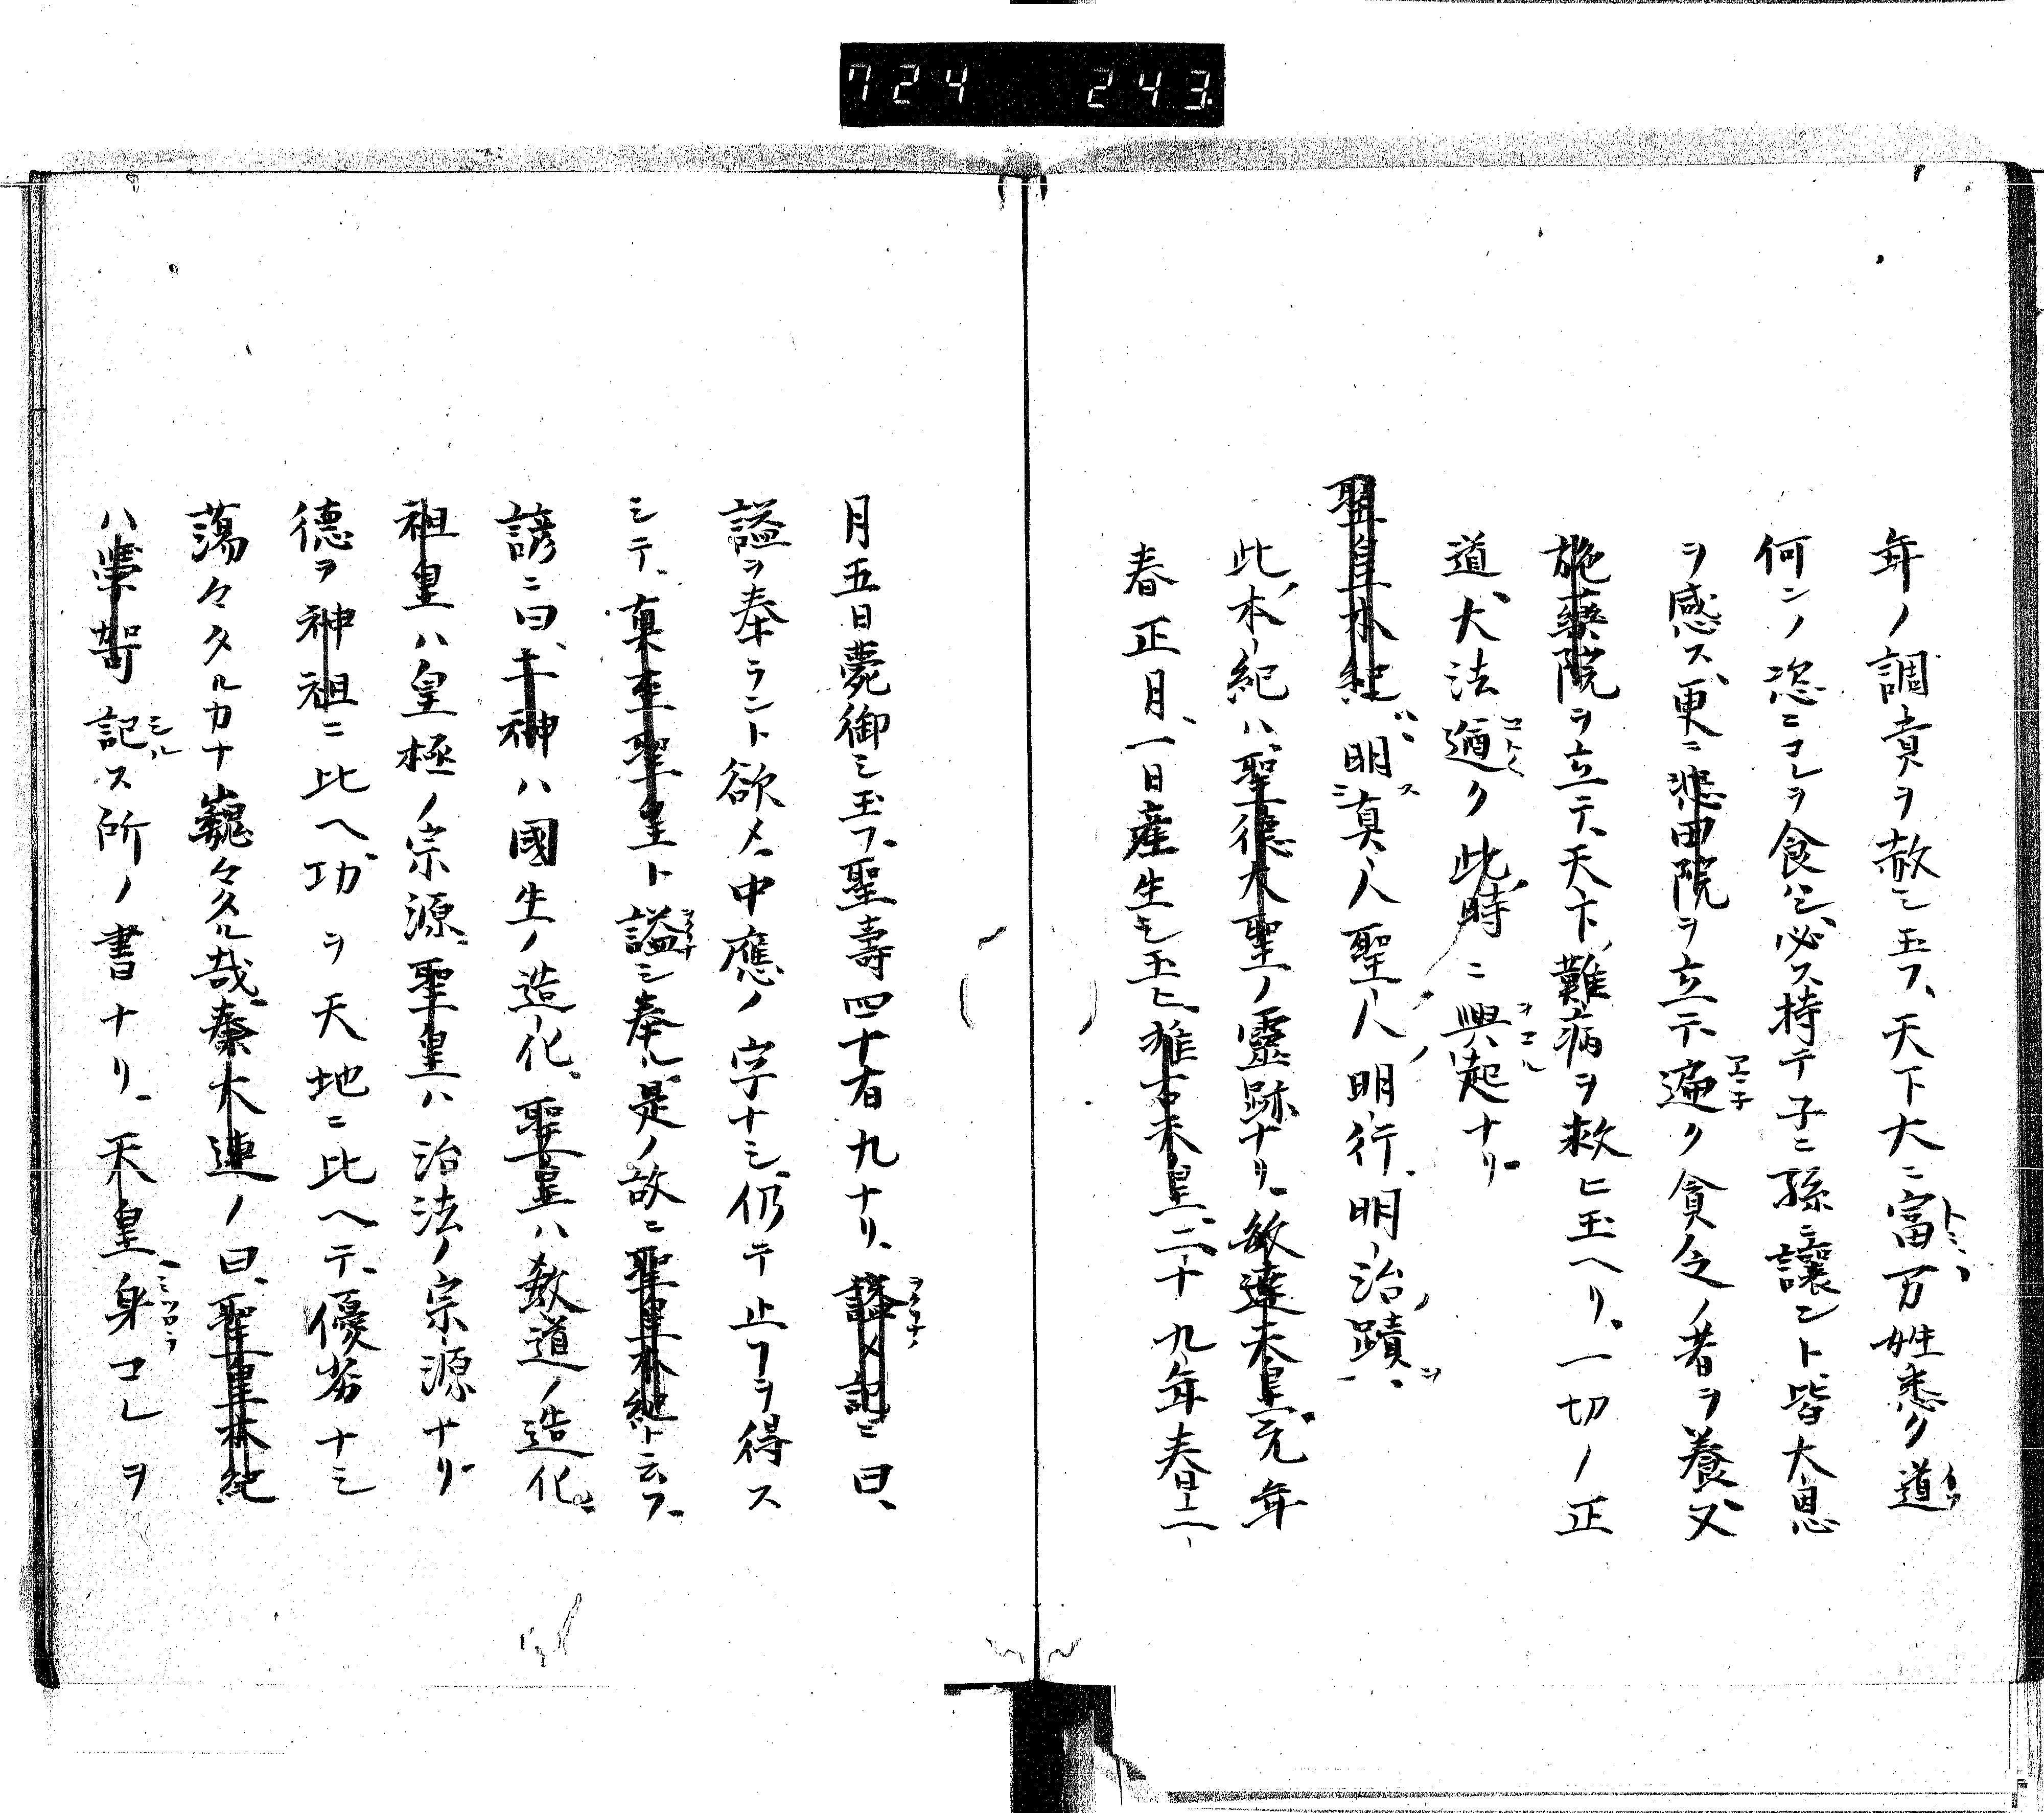 724 243
年ノ調貢ヲ赦シ玉フ、天下大ニ富万姓悉ク道
何ンノ恣ニコレヲ食ハン、必ス持テ子ニ孫ニ譲ント皆大恩
ヲ感ス、更ニ悲田院ヲ立テ遍ク貧人ノ者ヲ養又
施薬院ヲ立テ、天下、難病ヲ救ヒ玉ヘリ、一切ノ正
道、大法遍ク此時ニ興起ナリ
聖皇本紀ハ明真人聖人明行、明治蹟
此ノ本紀ハ聖徳大聖ノ靈跡ナリ、敏達天皇元年
春正月、一日産生シ玉ヒ推古天皇二十九年春二
月五日薨御シ玉フ、聖壽四十有九ナリ、謚ノ記ニ曰、
謚ヲ奉ラント欲メ、中應ノ字ナシ、仍テ止フヲ得ス
シテ、真至聖皇ト謚シ奉ル、是ノ故ニ聖皇本紀ト云フ、
諺ニ曰、土神ハ國生ノ造化、聖皇ハ教道ノ造化、
祖皇ハ皇極ノ宗源、聖皇ハ治法ノ宗源ナリ
徳ヲ神祖ニ比ヘ、功ヲ天地ニ比ヘテ、優劣ナシ
蕩々タルカナ巍々タル哉、秦大連ノ曰、聖皇本紀
ハ學哿記ス所ノ書ナリ、天皇、身コレヲ